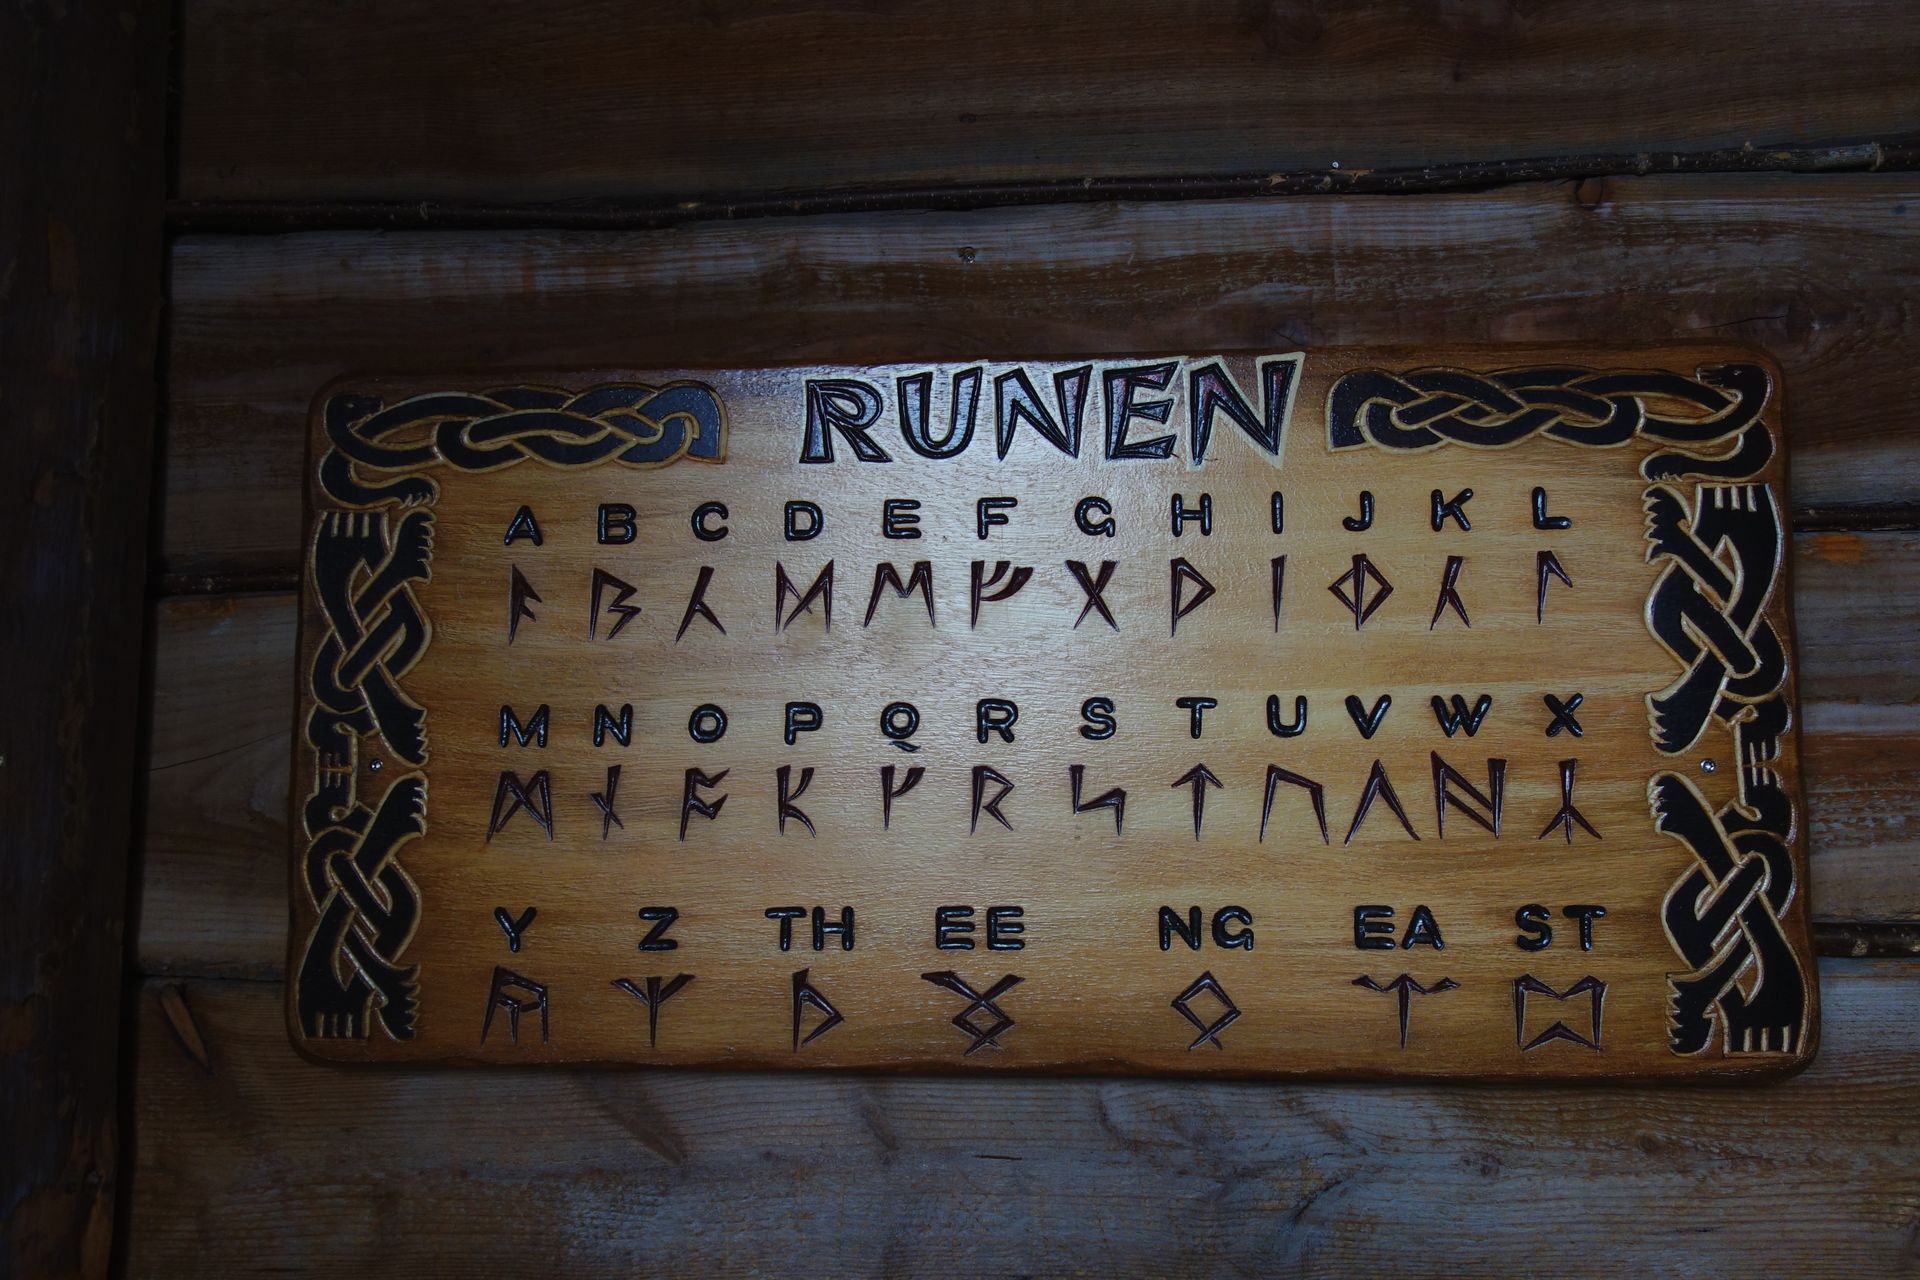 RUNEN
A B C D E F G H I J K L
ᚨ ᛒ ᚳ ᛞ ᛖ ᚠ ᚷ ᚦ ᛁ ᛄ ᚴ ᛚ
M N O P Q R S T U V W X
ᛗ ᚾ ᛟ ᚱ ᛊ ᛏ ᚢ ᚻ ᛣ
Y Z TH EE NG EA ST
ᚣ ᛉ ᚦ ᛟ ᛈ